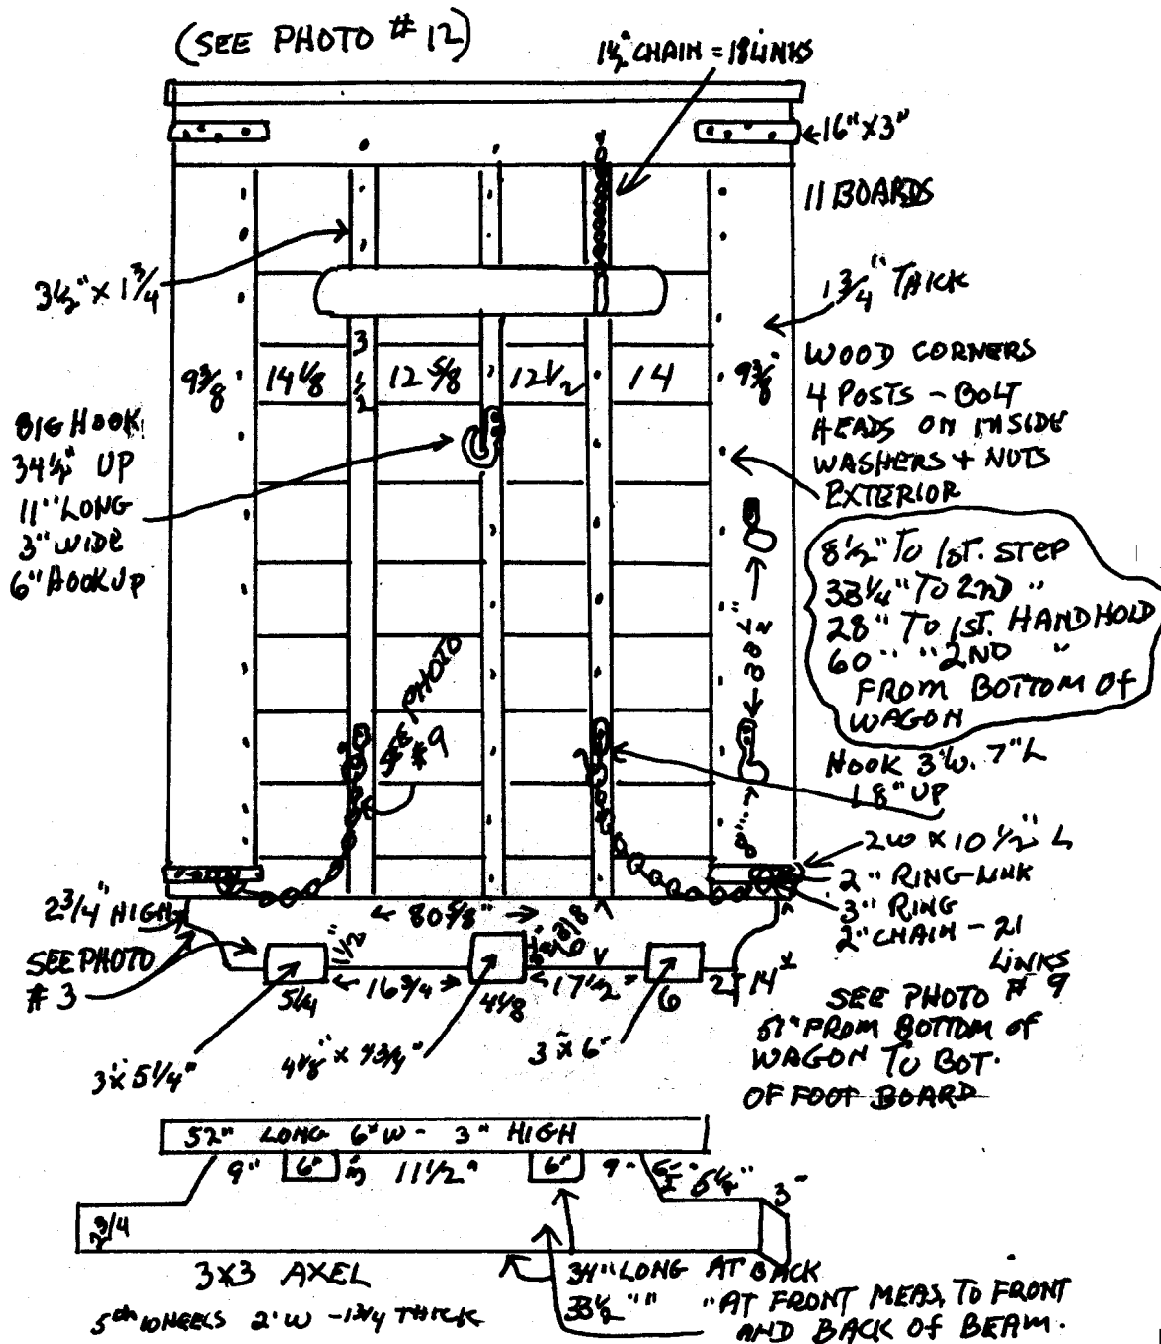 (SEE PHOTO # 12)
1½" CHAIN = 18 LINKS
16" X 3"
11 BOARDS
3½" X 1¾
1¾" THICK
WOOD CORNERS
4 POSTS - BOLT
HEADS ON INSIDE
WASHERS + NUTS
EXTERIOR
9⅜
14⅛
3½
12⅝
12½
14
9⅜"
BIG HOOK
34½" UP
11" LONG
3" WIDE
6" HOOK UP
8½" TO 1ST. STEP
33¼" TO 2ND "
28" TO 1ST. HANDHOLD
60" " 2ND "
FROM BOTTOM OF
WAGON
SEE PHOTO
# 9
HOOK 3"W. 7"L
18" UP
8"
2W X 10½" L
2" RING-LINK
3" RING
2" CHAIN - 21
LINKS
SEE PHOTO # 9
2¾" HIGH
SEE PHOTO
# 3
80⅝"
11½"
5¼
16¾
4⅛
17½"
6
2
14"
3" X 5¼"
4⅛" X 4¾"
3" X 6"
51" FROM BOTTOM OF
WAGON TO BOT.
OF FOOT BOARD
52" LONG 6"W - 3" HIGH
9"
6"
3"
11½"
6"
9"
5½"
3"
2¾
3X3 AXEL
5TH WHEELS 2"W - 1¾ THICK
34" LONG AT BACK
33½ "" "AT FRONT MEAS, TO FRONT
AND BACK OF BEAM.